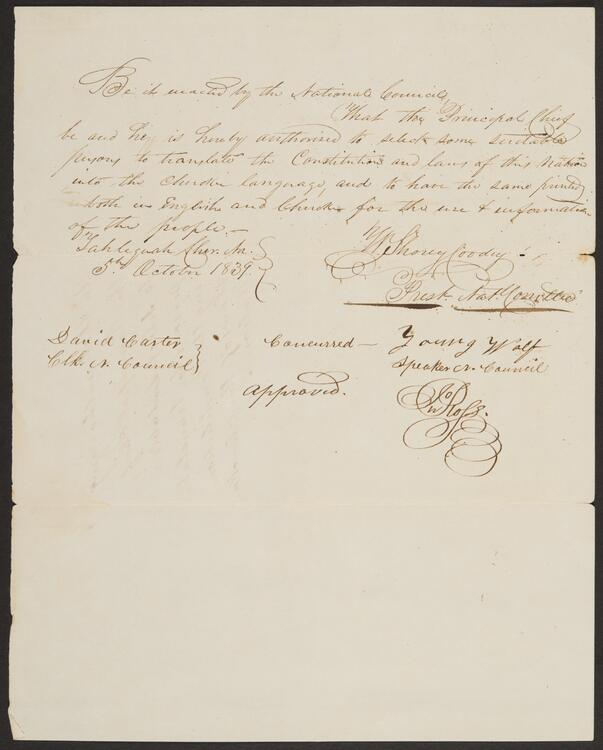 Be it enacted by the National Council,
That the Principal Chief
be and he is hereby authorised to select some suitable
persons to translate the Constitution and laws of this Nation
into the Cherokee language, and to have the same printed
both in English and Cherokee for the use & information
of the people.—
Tahlequah Cher. Na.
5th October 1839.
Wm Shorey Coodey
Prest. Natl. Committee
David Carter
Clk. N. Council
Concurred —
Young Wolf
Speaker N. Council
Approved.
Jno Ross.